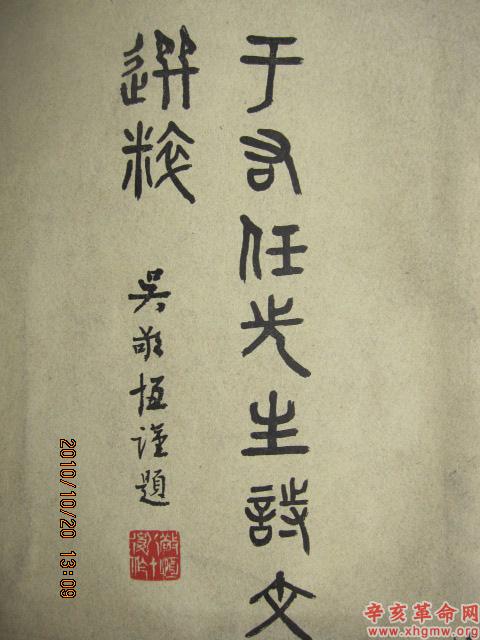 于右任先生詩文
選粹
吳敬恒謹題
2010/10/20 13:09
辛亥革命网
www.xhgmw.org